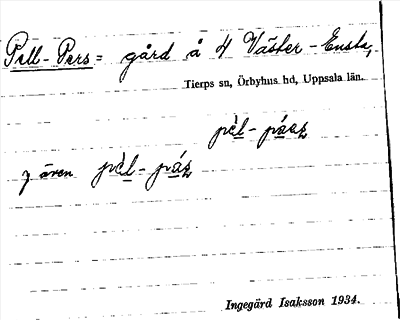 Pell-Pers = gård å 4 Väster-Ensta,
Tierps sn, Örbyhus hd, Uppsala län.
pèl-páaş
även pèl-páş
Ingegärd Isaksson 1934.